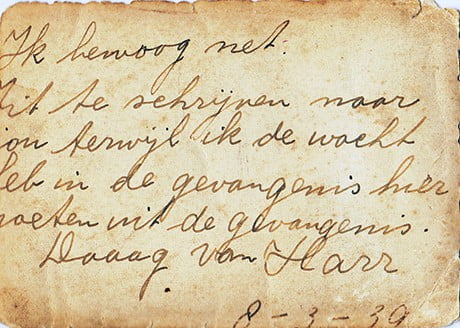 Ik bewoog net.
Zit te schrijven naar
jou terwijl ik de wacht
heb in de gevangenis hier
moeten uit de gevangenis.
Daaag van Harr
8-3-39